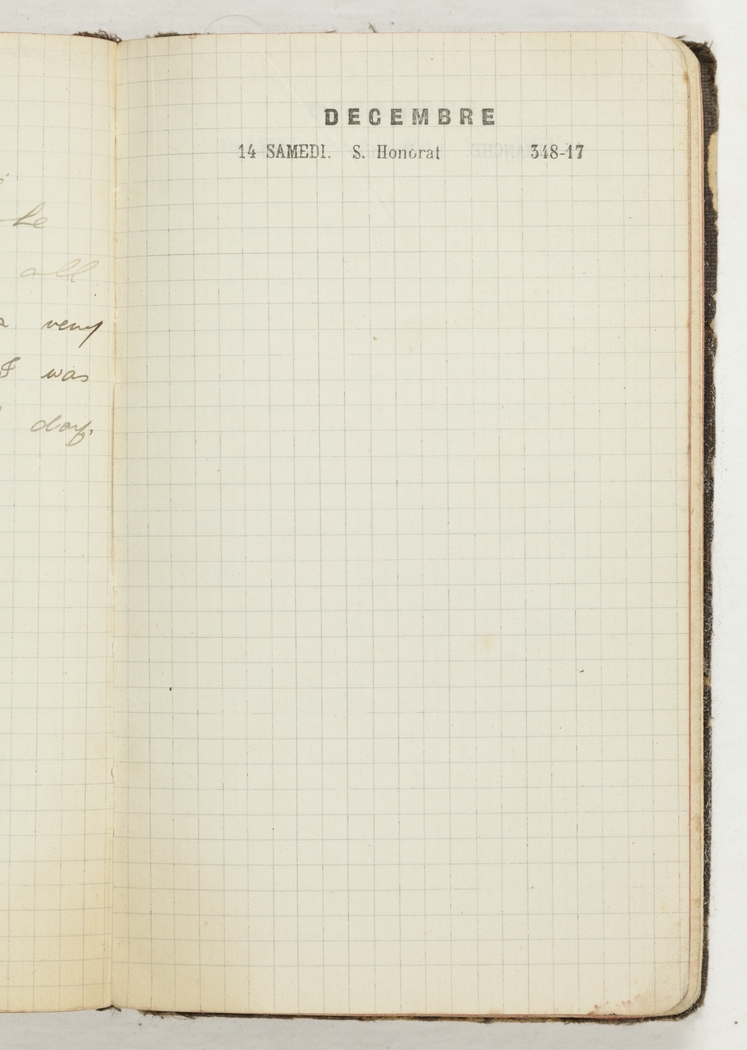 he
all
very
I was
day.
DECEMBRE
14 SAMEDI. S. Honorat 348-17